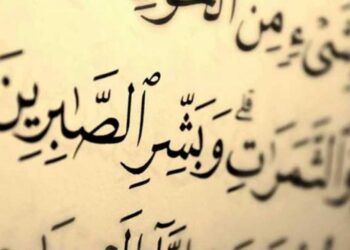 شَىْءٍ مِّنَ ٱلْخَوْفِ
وَٱلثَّمَرَٰتِ ۗ وَبَشِّرِ ٱلصَّٰبِرِينَ